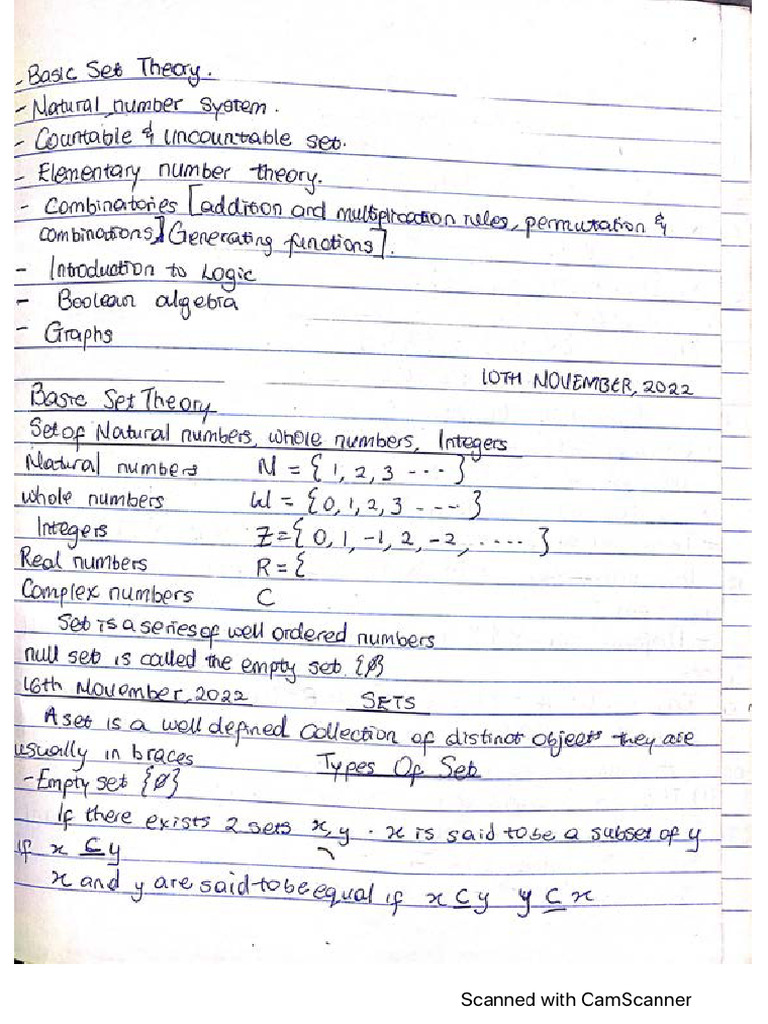 - Basic Set Theory.
- Natural number System.
- Countable & Uncountable set.
- Elementary number theory.
- Combinatories [addition and multiplication rules, permutation &
combinations] [Generating functions].
- Introduction to Logic
- Boolean algebra
- Graphs
10TH NOVEMBER, 2022
Basic Set Theory
Set of Natural numbers, whole numbers, Integers
Natural numbers N = { 1, 2, 3 ---- }
whole numbers W = { 0, 1, 2, 3 ---- }
Integers Z = { 0, 1, -1, 2, -2, ..... }
Real numbers R = {
Complex numbers C
Set is a series of well ordered numbers
null set is called the empty set {∅}
16th November, 2022 SETS
A set is a well defined collection of distinct objects they are
usually in braces Types Of Set
- Empty set {∅}
If there exists 2 sets x, y . x is said to be a subset of y
if x ⊆ y
x and y are said to be equal if x ⊆ y y ⊆ x
Scanned with CamScanner